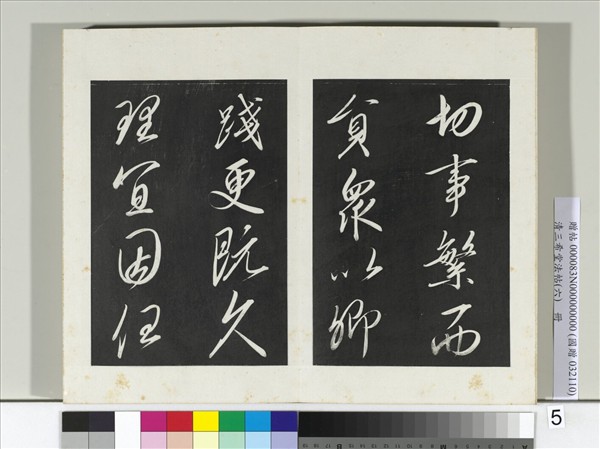 切事繁而
員衆以卿
踐更既久
理宜因任
贈帖 000083N000000000 (國贈 032110)
清三希堂法帖(六) 冊
5